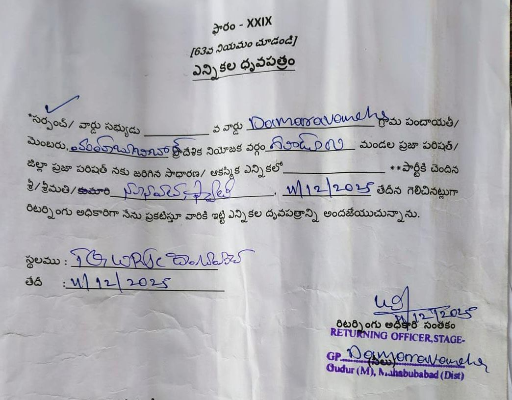 ఫారం - XXIX
[63వ నియమం చూడండి]
ఎన్నికల ధృవపత్రం
*సర్పంచ్/ వార్డు సభ్యుడు వ వార్డు Damaravancha గ్రామ పంచాయతీ/
మెంబరు, ప్రాదేశిక నియోజక వర్గం మండల ప్రజా పరిషత్/
జిల్లా ప్రజా పరిషత్ నకు జరిగిన సాధారణ/ ఆకస్మిక ఎన్నికలో **పార్టీకి చెందిన
శ్రీ/శ్రీమతి/కుమారి 11/12/2025 తేదీన గెలిచినట్లుగా
రిటర్నింగు అధికారిగా నేను ప్రకటిస్తూ వారికి ఇట్టి ఎన్నికల ధృవపత్రాన్ని అందజేయుచున్నాను.
స్థలము : TGWRJC
తేదీ : 11/12/2025
11/12/2025
రిటర్నింగు అధికారి సంతకం
RETURNING OFFICER, STAGE-
GP. Damaravancha
Gudur (M), Mahabubabad (Dist)